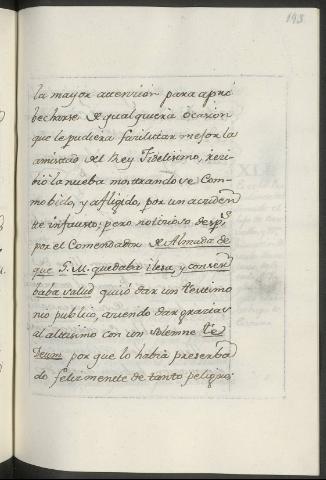 193
la mayor attención para apro
becharse de qualquiera ocasion
que le pudiera facilitar mejor la
amistad del Rey Fidelisimo, reci
bió la nueba mostrandose Com
mobido, y afligido, por un acciden
te infausto; pero noticioso desp.s
por el Comendador de Almada de
que S. M. quedaba ilesa, y conser
baba salud quizó dar un testimo
nio publico, aciendo dar gracias
al altisimo con un solemne te
Deum por que lo habia preserba
do felizmente de tanto peligro;